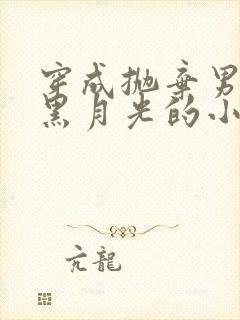 穿成抛弃男
黑月光的小
亢龍